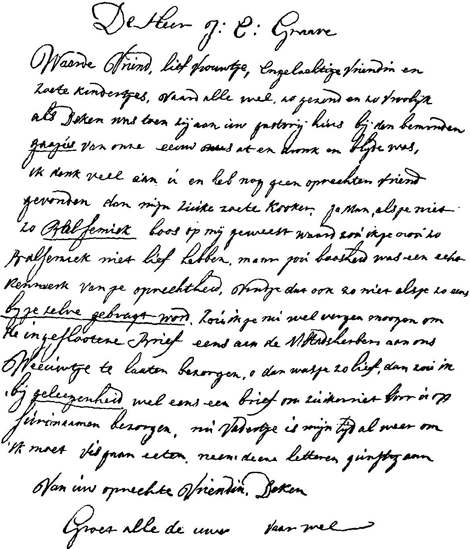 De Heer J: E: Graave
Waarde Vriend, lief vrouwtje, Engelachtige Vriendin en
zoete kindertjes, vaard alle wel, zo gezond en zo vrolijk
als Deken uns toen zij aan uw pastorij huis bij den beminden
van onze eeuw at en dronk en blijde was,
ik denk veel aan u en heb nog geen oprechten vriend
gevonden dan mijn zoete Kooker. Ja Man, als je niet
zo boos op mij geweest waard zou ik je nooit zo
niet lief hebben, maar jou boosheid was een echt
kenmerk van je oprechtheid, dat ook zo niet als je zo eens
bij je zelve gebragt word. Zou ik je nu wel vergen moogen om
de ingeslootene Brief eens aan de aan ons
Weeuwtje te laaten bezorgen, o dan was je zo lief, dan zou ik
bij geleegenheid wel eens een brief om voor u op
Surinaamen bezorgen, nu Vadertje is mijn tijd al weer om
ik moet Vis gaan eeten, neem deeze letteren gunstig aan
Van uw oprechte Vriendin. Deken
Groet alle de uwe vaar wel